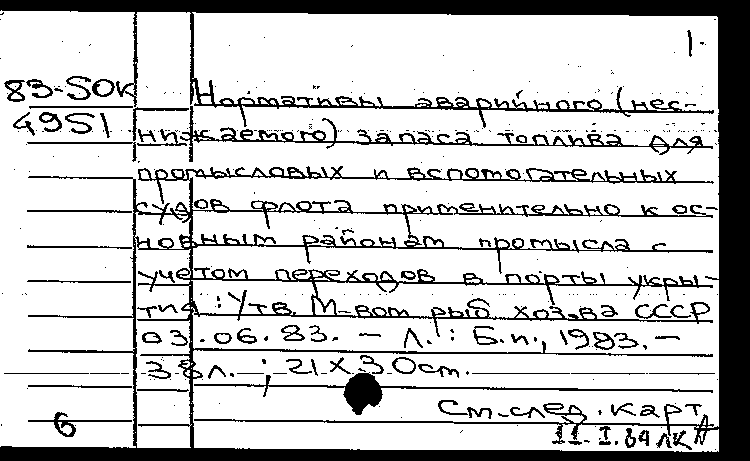 1.
83-SOK
4951
Нормативы аварийного (нес-
нижаемого) запаса топлива для
промысловых и вспомогательных
судов флота применительно к ос-
новным районам промысла с
учетом переходов в порты укры-
тия : Утв. М-вом рыб хоз-ва СССР
03.06.83. – Л. : Б.и., 1983. –
38л. ; 21 X 30 cm.
См. след. карт
6
11. I. 84 ЛК